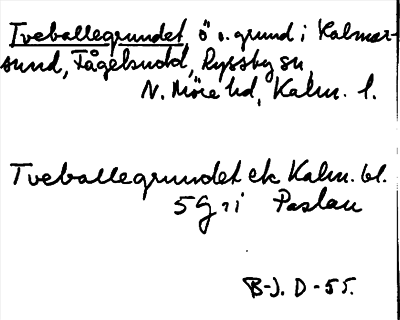 Tveballegrundet ö o. grund i Kalmar-
sund, Fågelsudd, Ryssby sn,
N. Möre hd, Kalm. l.
Tveballegrundet ek Kalm. bl.
5 G i Paslau
B-J. D-55.